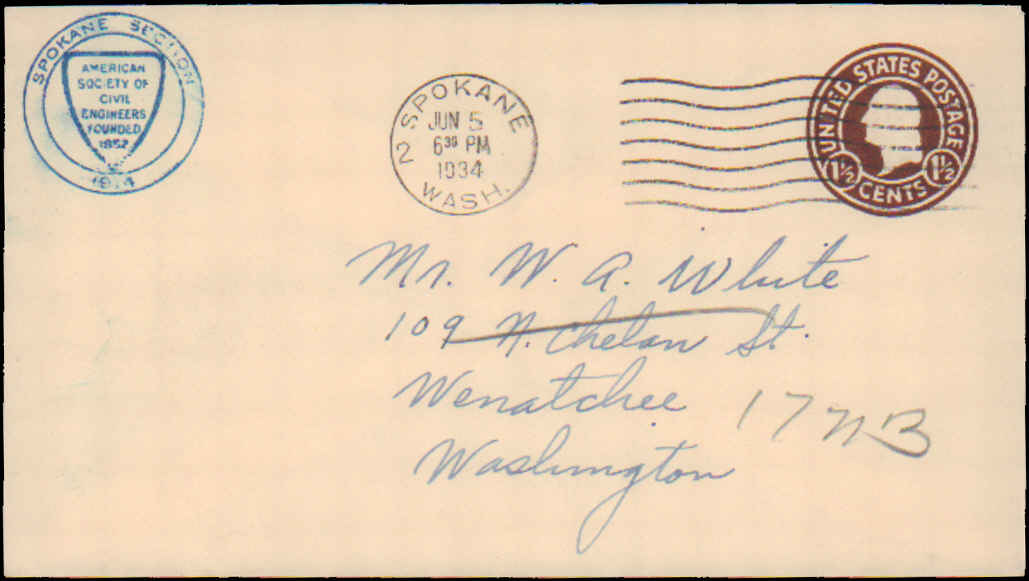 SPOKANE SECTION
AMERICAN
SOCIETY OF
CIVIL
ENGINEERS
FOUNDED
1852
1914
SPOKANE
JUN 5
6 30 PM
1934
2
WASH.
UNITED STATES POSTAGE
1½ 1½
CENTS
Mr. W. A. White
109 N. Chelan St.
Wenatchee
Washington
17 NB